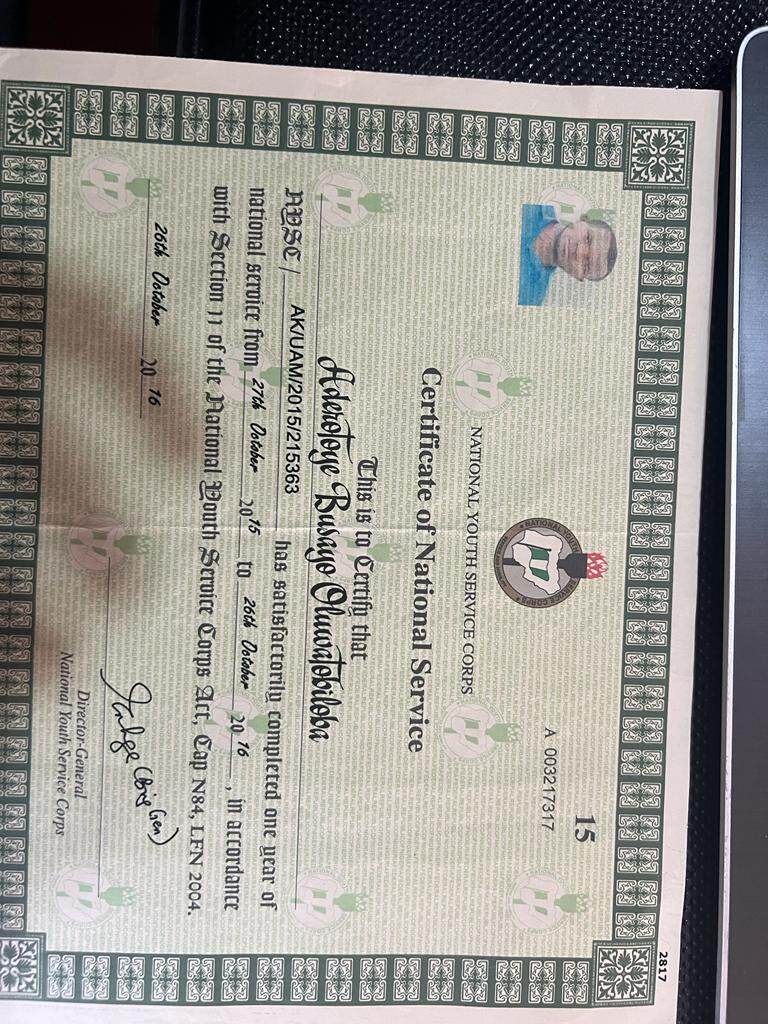 2817
15
A 003217317
NATIONAL YOUTH SERVICE CORPS
Certificate of National Service
This is to Certify that
Aderotoye Busayo Oluwatobiloba
NYSC / AK/UAM/2015/215363 has satisfactorily completed one year of
national service from 27th October 2015 to 26th October 2016, in accordance
with Section 11 of the National Youth Service Corps Act, Cap N84, LFN 2004.
26th October 2016
(Brig Gen)
Director-General
National Youth Service Corps